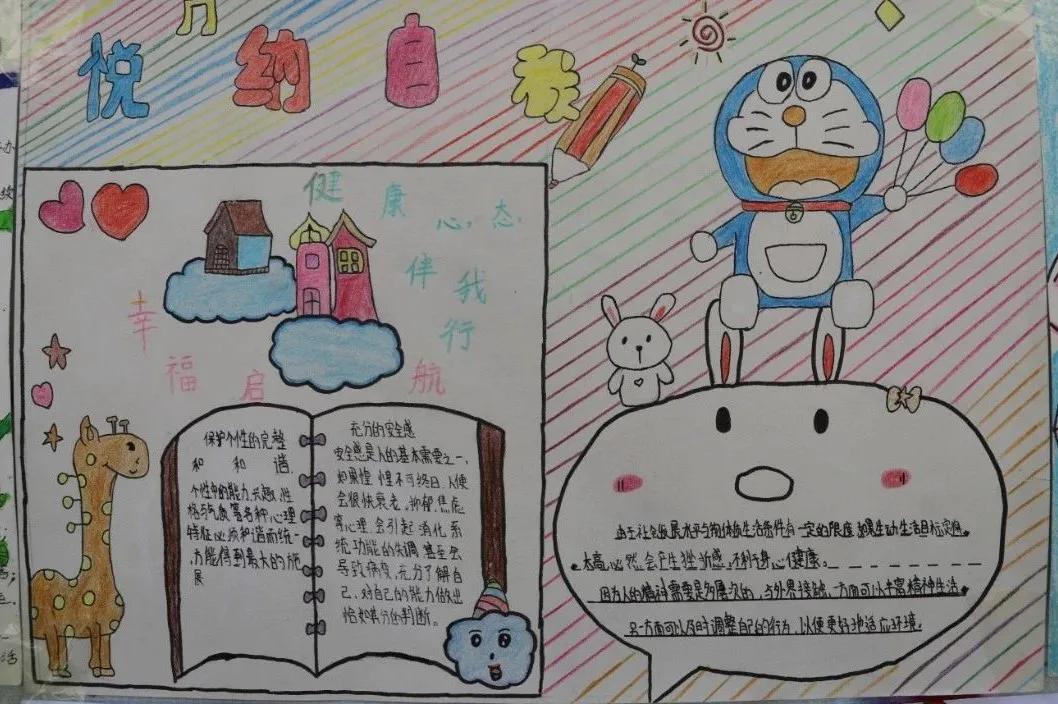 悦纳自我
健康心态,
伴我行
幸福启航
保护个性的完整
和和谐
个性中的能力,兴趣,性
格与气质等各种心理
特征必须和谐而统一
方能得到最大的施
展
充分的安全感
安全感是人的基本需要之一,
如果惶惶不可终日,人便
会很快衰老。抑郁、焦虑
等心理,会引起消化系
统功能的失调,甚至会
导致病变,充分了解自
己,对自己的能力做出
恰如其分的判断。
由于社会发展水平与物质生活条件有一定的限度,如果生动生活目标定得
太高,必然会产生挫折感,不利于身心健康。
因为人的精神需要是多层次的,与外界接触,一方面可以丰富精神生活
另一方面可以及时调整自己的行为,以便更好地适应环境。